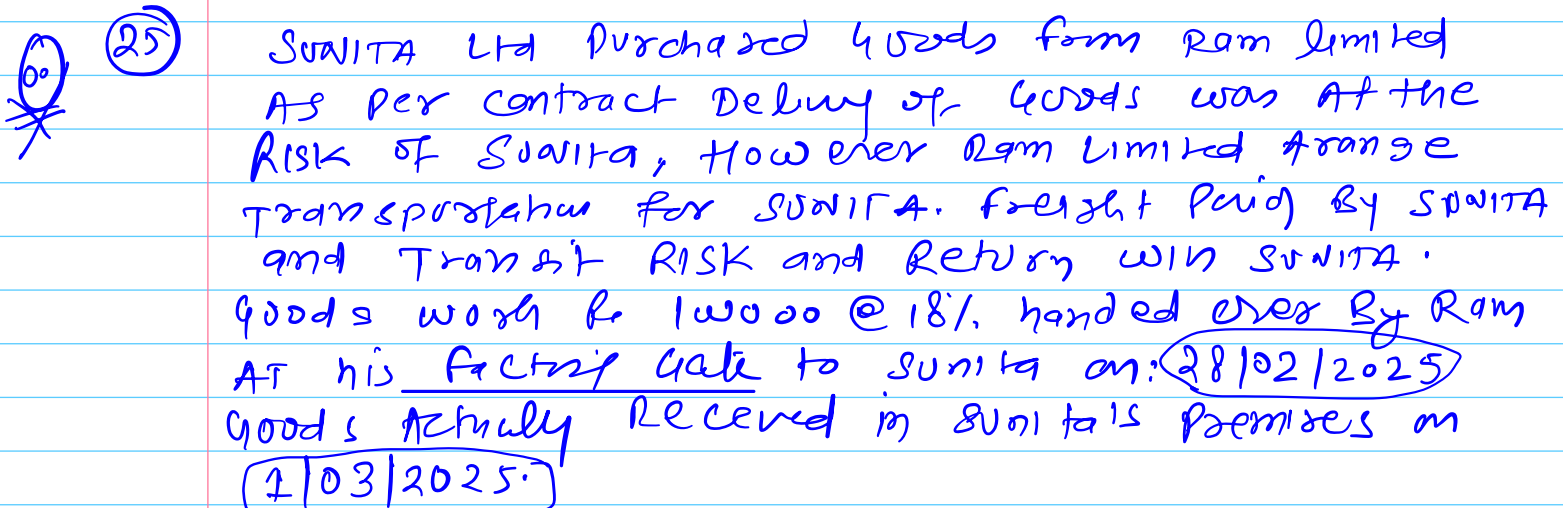 25 SUNITA Ltd Purchased Goods from Ram limited
As Per contract Delivry of Goods was At the
RISK of Sunita, However Ram Limited Arange
Transportation for SUNITA. freight Paid By SUNITA
and Transit RISK and Return with SUNITA.
Goods worth Rs 100000 @ 18% handed over By Ram
AT his factory Gate to sunita on: 28/02/2025
Goods Actually Received in sunita's Premises on
1/03/2025.